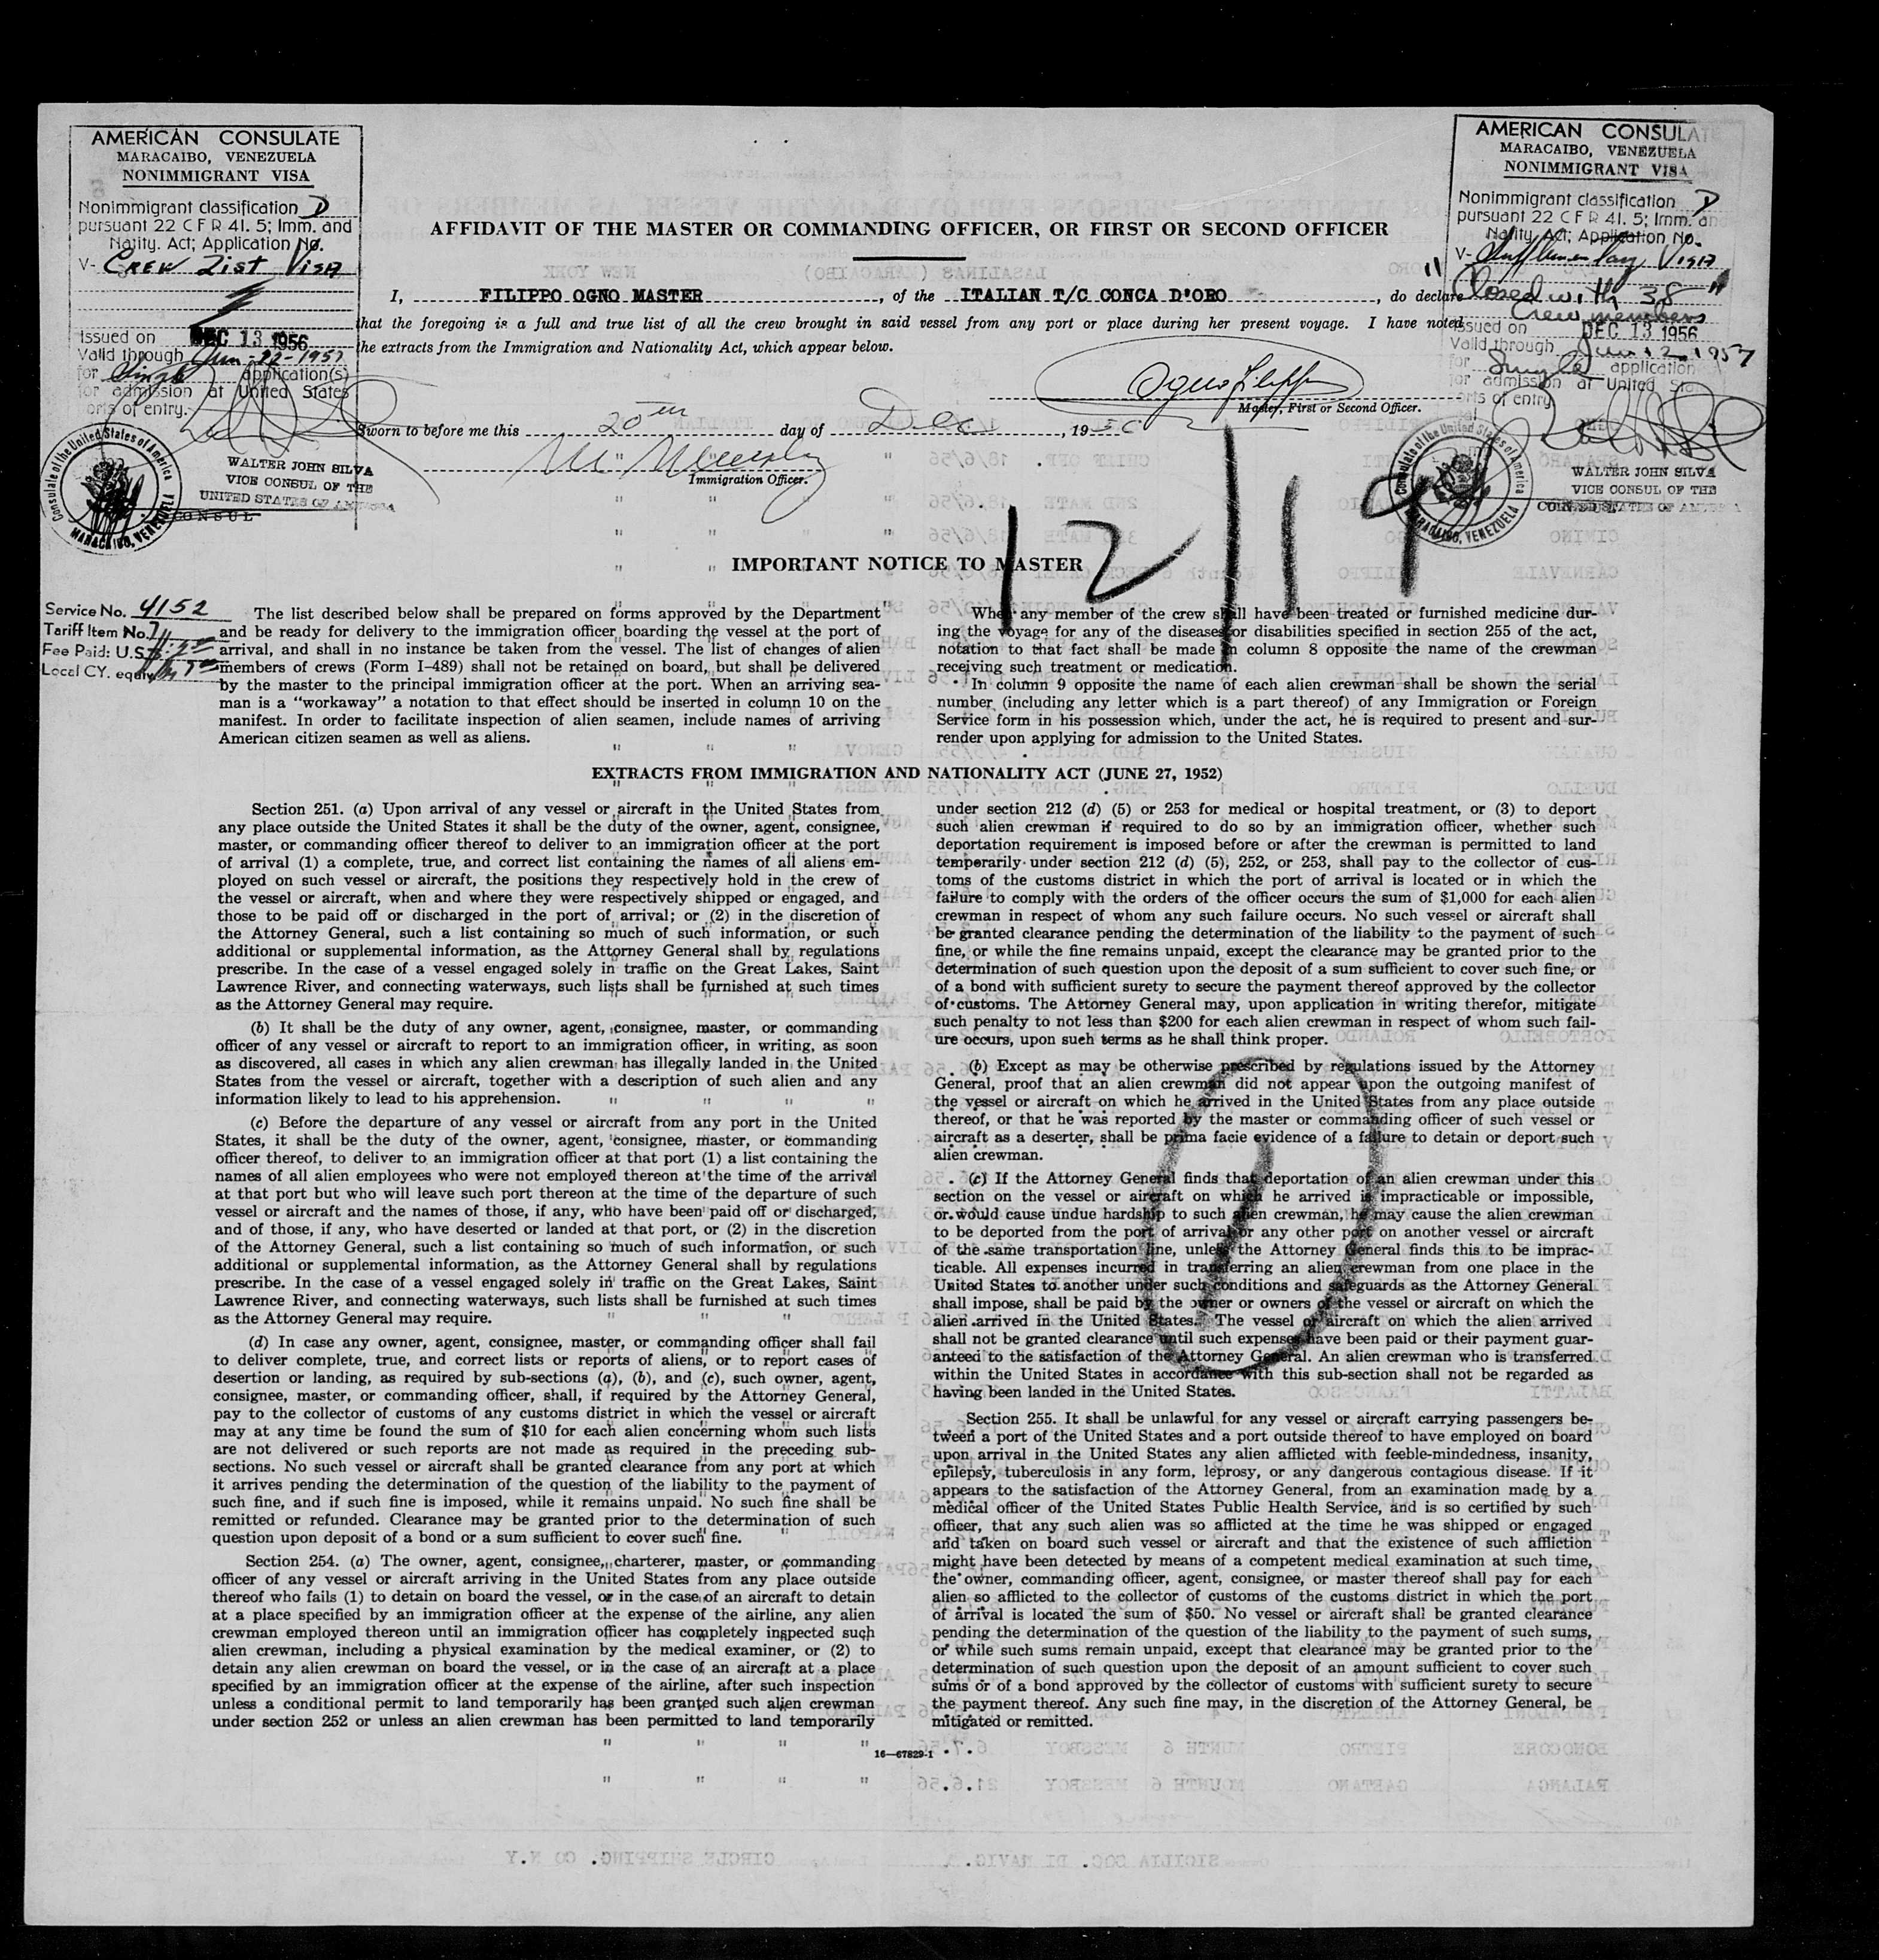 AMERICAN CONSULATE
MARACAIBO, VENEZUELA
NONIMMIGRANT VISA
Nonimmigrant classification D
pursuant 22 C F R 41. 5; Imm. and
Natity. Act; Application No.
V- Crew List Visa
Issued on DEC 13 1956
Valid through Jun-12-1957
for Single application(s)
for admission at United States
orts of entry.
WALTER JOHN SILVA
VICE CONSUL OF THE
UNITED STATES OF AMERICA
CONSUL
Consulate of the United States of America
MARACAIBO, VENEZUELA
AMERICAN CONSULATE
MARACAIBO, VENEZUELA
NONIMMIGRANT VISA
Nonimmigrant classification D
pursuant 22 C F R 41. 5; Imm. an
Natity. Act; Application No.
V- Supplementary Visa
"Closed with 38"
Crew members
Issued on DEC 13 1956
Valid through Jun 12 1957
for Single application
for admission at United Sta
orts of entry
WALTER JOHN SILVA
VICE CONSUL OF THE
UNITED STATES OF AMERICA
Consulate of the United States of America
MARACAIBO, VENEZUELA
AFFIDAVIT OF THE MASTER OR COMMANDING OFFICER, OR FIRST OR SECOND OFFICER
I, FILIPPO OGNO MASTER, of the ITALIAN T/C CONCA D'ORO, do declare
that the foregoing is a full and true list of all the crew brought in said vessel from any port or place during her present voyage. I have noted
the extracts from the Immigration and Nationality Act, which appear below.
Ogno Filippo
Master, First or Second Officer.
Sworn to before me this 20th day of Dec, 1956
Immigration Officer.
12/19
IMPORTANT NOTICE TO MASTER
Service No. 4152
Tariff Item No. 7
Fee Paid: U.S.
Local CY. equiv.
The list described below shall be prepared on forms approved by the Department
and be ready for delivery to the immigration officer boarding the vessel at the port of
arrival, and shall in no instance be taken from the vessel. The list of changes of alien
members of crews (Form I-489) shall not be retained on board, but shall be delivered
by the master to the principal immigration officer at the port. When an arriving sea-
man is a "workaway" a notation to that effect should be inserted in column 10 on the
manifest. In order to facilitate inspection of alien seamen, include names of arriving
American citizen seamen as well as aliens.
When any member of the crew shall have been treated or furnished medicine dur-
ing the voyage for any of the diseases or disabilities specified in section 255 of the act,
notation to that fact shall be made in column 8 opposite the name of the crewman
receiving such treatment or medication.
In column 9 opposite the name of each alien crewman shall be shown the serial
number (including any letter which is a part thereof) of any Immigration or Foreign
Service form in his possession which, under the act, he is required to present and sur-
render upon applying for admission to the United States.
EXTRACTS FROM IMMIGRATION AND NATIONALITY ACT (JUNE 27, 1952)
Section 251. (a) Upon arrival of any vessel or aircraft in the United States from
any place outside the United States it shall be the duty of the owner, agent, consignee,
master, or commanding officer thereof to deliver to an immigration officer at the port
of arrival (1) a complete, true, and correct list containing the names of all aliens em-
ployed on such vessel or aircraft, the positions they respectively hold in the crew of
the vessel or aircraft, when and where they were respectively shipped or engaged, and
those to be paid off or discharged in the port of arrival; or (2) in the discretion of
the Attorney General, such a list containing so much of such information, or such
additional or supplemental information, as the Attorney General shall by regulations
prescribe. In the case of a vessel engaged solely in traffic on the Great Lakes, Saint
Lawrence River, and connecting waterways, such lists shall be furnished at such times
as the Attorney General may require.
(b) It shall be the duty of any owner, agent, consignee, master, or commanding
officer of any vessel or aircraft to report to an immigration officer, in writing, as soon
as discovered, all cases in which any alien crewman has illegally landed in the United
States from the vessel or aircraft, together with a description of such alien and any
information likely to lead to his apprehension.
(c) Before the departure of any vessel or aircraft from any port in the United
States, it shall be the duty of the owner, agent, consignee, master, or commanding
officer thereof, to deliver to an immigration officer at that port (1) a list containing the
names of all alien employees who were not employed thereon at the time of the arrival
at that port but who will leave such port thereon at the time of the departure of such
vessel or aircraft and the names of those, if any, who have been paid off or discharged,
and of those, if any, who have deserted or landed at that port, or (2) in the discretion
of the Attorney General, such a list containing so much of such information, or such
additional or supplemental information, as the Attorney General shall by regulations
prescribe. In the case of a vessel engaged solely in traffic on the Great Lakes, Saint
Lawrence River, and connecting waterways, such lists shall be furnished at such times
as the Attorney General may require.
(d) In case any owner, agent, consignee, master, or commanding officer shall fail
to deliver complete, true, and correct lists or reports of aliens, or to report cases of
desertion or landing, as required by sub-sections (a), (b), and (c), such owner, agent,
consignee, master, or commanding officer, shall, if required by the Attorney General,
pay to the collector of customs of any customs district in which the vessel or aircraft
may at any time be found the sum of $10 for each alien concerning whom such lists
are not delivered or such reports are not made as required in the preceding sub-
sections. No such vessel or aircraft shall be granted clearance from any port at which
it arrives pending the determination of the question of the liability to the payment of
such fine, and if such fine is imposed, while it remains unpaid. No such fine shall be
remitted or refunded. Clearance may be granted prior to the determination of such
question upon deposit of a bond or a sum sufficient to cover such fine.
Section 254. (a) The owner, agent, consignee, charterer, master, or commanding
officer of any vessel or aircraft arriving in the United States from any place outside
thereof who fails (1) to detain on board the vessel, or in the case of an aircraft to detain
at a place specified by an immigration officer at the expense of the airline, any alien
crewman employed thereon until an immigration officer has completely inspected such
alien crewman, including a physical examination by the medical examiner, or (2) to
detain any alien crewman on board the vessel, or in the case of an aircraft at a place
specified by an immigration officer at the expense of the airline, after such inspection
unless a conditional permit to land temporarily has been granted such alien crewman
under section 252 or unless an alien crewman has been permitted to land temporarily
under section 212 (d) (5) or 253 for medical or hospital treatment, or (3) to deport
such alien crewman if required to do so by an immigration officer, whether such
deportation requirement is imposed before or after the crewman is permitted to land
temporarily under section 212 (d) (5), 252, or 253, shall pay to the collector of cus-
toms of the customs district in which the port of arrival is located or in which the
failure to comply with the orders of the officer occurs the sum of $1,000 for each alien
crewman in respect of whom any such failure occurs. No such vessel or aircraft shall
be granted clearance pending the determination of the liability to the payment of such
fine, or while the fine remains unpaid, except the clearance may be granted prior to the
determination of such question upon the deposit of a sum sufficient to cover such fine, or
of a bond with sufficient surety to secure the payment thereof approved by the collector
of customs. The Attorney General may, upon application in writing therefor, mitigate
such penalty to not less than $200 for each alien crewman in respect of whom such fail-
ure occurs, upon such terms as he shall think proper.
(b) Except as may be otherwise prescribed by regulations issued by the Attorney
General, proof that an alien crewman did not appear upon the outgoing manifest of
the vessel or aircraft on which he arrived in the United States from any place outside
thereof, or that he was reported by the master or commanding officer of such vessel or
aircraft as a deserter, shall be prima facie evidence of a failure to detain or deport such
alien crewman.
(c) If the Attorney General finds that deportation of an alien crewman under this
section on the vessel or aircraft on which he arrived is impracticable or impossible,
or would cause undue hardship to such alien crewman, he may cause the alien crewman
to be deported from the port of arrival or any other port on another vessel or aircraft
of the same transportation line, unless the Attorney General finds this to be imprac-
ticable. All expenses incurred in transferring an alien crewman from one place in the
United States to another under such conditions and safeguards as the Attorney General
shall impose, shall be paid by the owner or owners of the vessel or aircraft on which the
alien arrived in the United States. The vessel or aircraft on which the alien arrived
shall not be granted clearance until such expenses have been paid or their payment guar-
anteed to the satisfaction of the Attorney General. An alien crewman who is transferred
within the United States in accordance with this sub-section shall not be regarded as
having been landed in the United States.
Section 255. It shall be unlawful for any vessel or aircraft carrying passengers be-
tween a port of the United States and a port outside thereof to have employed on board
upon arrival in the United States any alien afflicted with feeble-mindedness, insanity,
epilepsy, tuberculosis in any form, leprosy, or any dangerous contagious disease. If it
appears to the satisfaction of the Attorney General, from an examination made by a
medical officer of the United States Public Health Service, and is so certified by such
officer, that any such alien was so afflicted at the time he was shipped or engaged
and taken on board such vessel or aircraft and that the existence of such affliction
might have been detected by means of a competent medical examination at such time,
the owner, commanding officer, agent, consignee, or master thereof shall pay for each
alien so afflicted to the collector of customs of the customs district in which the port
of arrival is located the sum of $50. No vessel or aircraft shall be granted clearance
pending the determination of the question of the liability to the payment of such sums,
or while such sums remain unpaid, except that clearance may be granted prior to the
determination of such question upon the deposit of an amount sufficient to cover such
sums or of a bond approved by the collector of customs with sufficient surety to secure
the payment thereof. Any such fine may, in the discretion of the Attorney General, be
mitigated or remitted.
1
16—67829-1